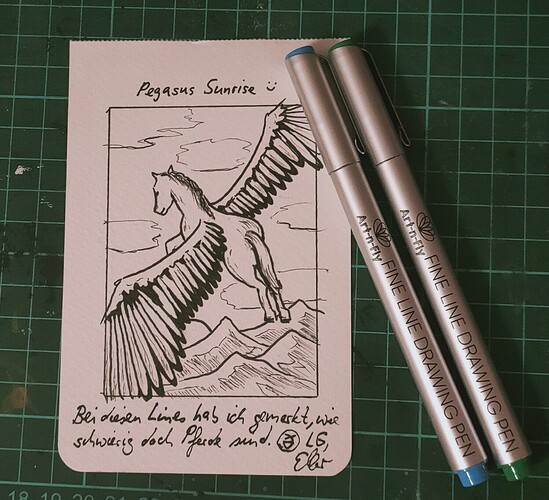 Pegasus Sunrise ü
Bei diesen Limes hab ich gemerkt, wie
schwierig doch Pferde sind. LG,
Art-n-Fly FINE LINE DRAWING PEN
Art-n-Fly FINE LINE DRAWING PEN
18 19 20 21